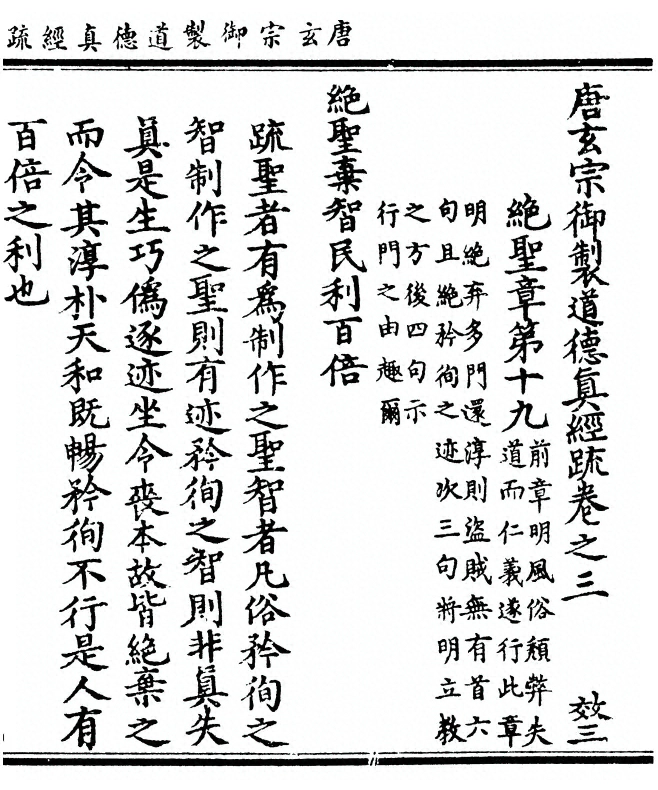 唐玄宗御製道德真經疏
唐玄宗御製道德眞經疏卷之三 效三
絶聖章第十九
前章明風俗頹弊失
道而仁義遂行此章
明絶弃多門還淳則盜賊無有首六
句且絶矜徇之迹次三句將明立教
之方後四句示
行門之由趣爾
絶聖棄智民利百倍
疏聖者有爲制作之聖智者凡俗矜徇之
智制作之聖則有迹矜徇之智則非眞失
眞是生巧僞逐迹坐令喪本故皆絶棄之
而令其淳朴天和既暢矜徇不行是人有
百倍之利也